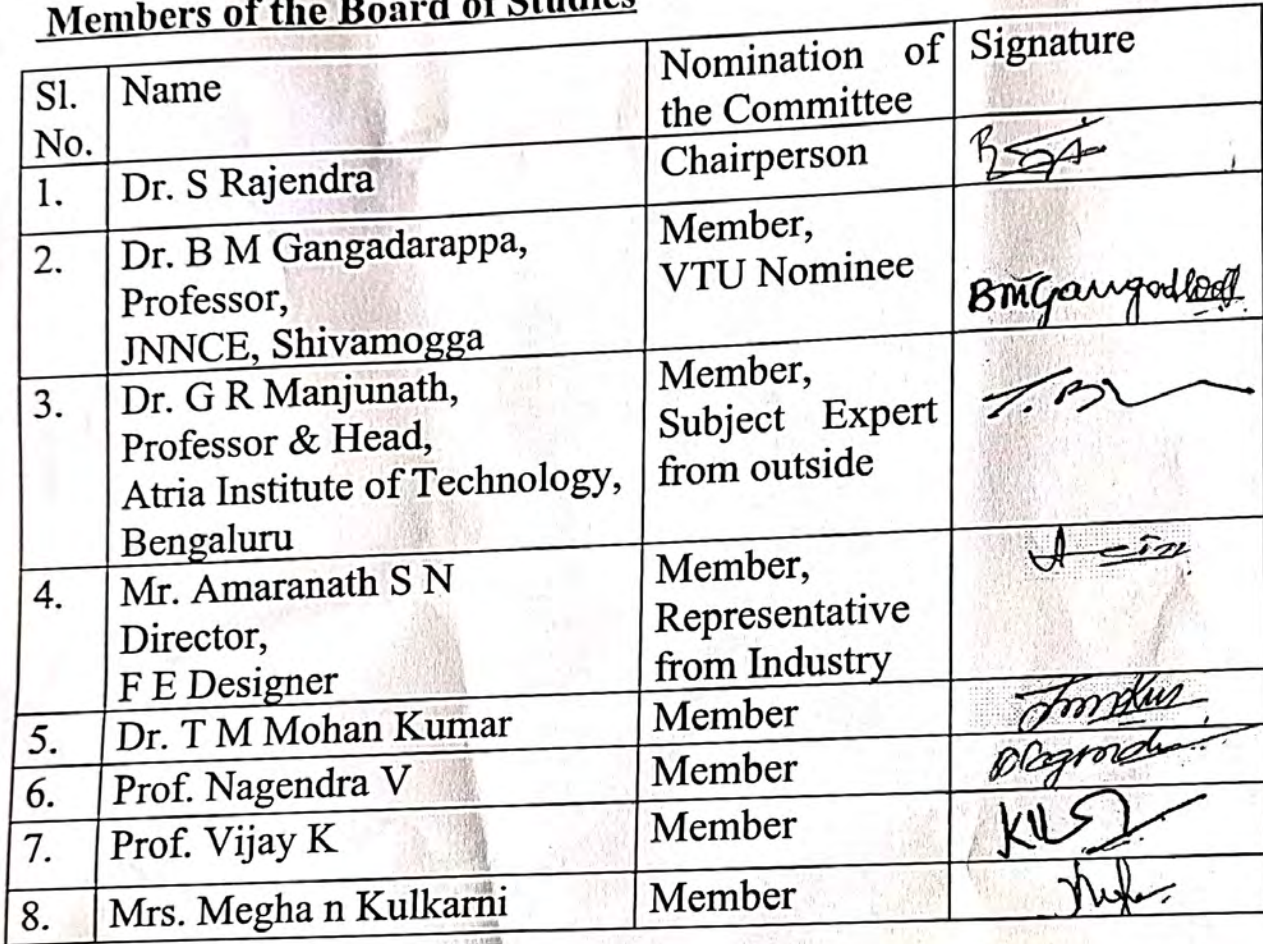 Members of the Board of Studies
Sl. No.
Name
Nomination of the Committee
Signature
1.
Dr. S Rajendra
Chairperson
2.
Dr. B M Gangadarappa,
Professor,
JNNCE, Shivamogga
Member,
VTU Nominee
3.
Dr. G R Manjunath,
Professor & Head,
Atria Institute of Technology,
Bengaluru
Member,
Subject Expert
from outside
4.
Mr. Amaranath S N
Director,
F E Designer
Member,
Representative
from Industry
5.
Dr. T M Mohan Kumar
Member
6.
Prof. Nagendra V
Member
7.
Prof. Vijay K
Member
8.
Mrs. Megha n Kulkarni
Member